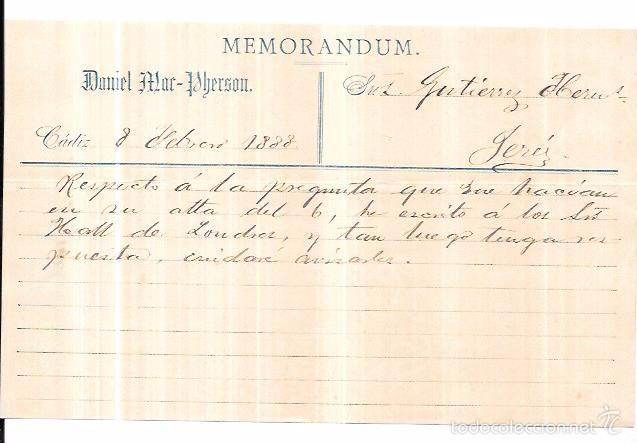 MEMORANDUM.
Daniel Mac-Pherson.
Sres. Gutierrez Herms.
Cádiz 8 Febrero 1888
Jerez
Respecto á la pregunta que me hacían
en su atta del 6, he escrito á los Sres
Hall de Londres, y tan luego tenga res
puesta, cuidaré avisarles.
todocoleccion.net